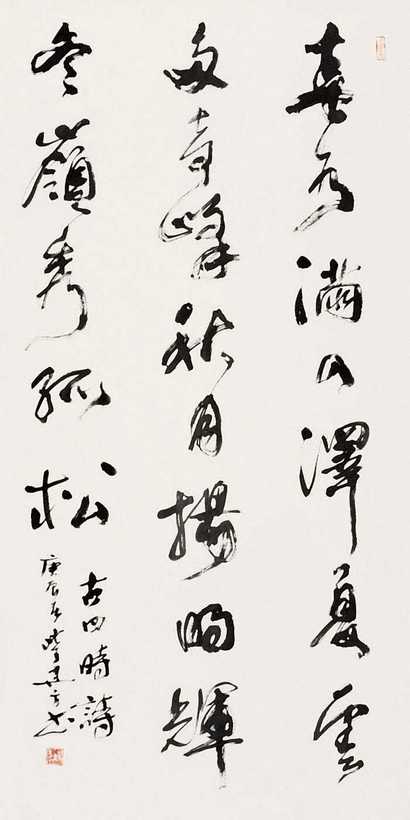 春水滿四澤夏雲
多奇峰秋月揚明輝
冬嶺秀孤松
古四時詩
庚辰春